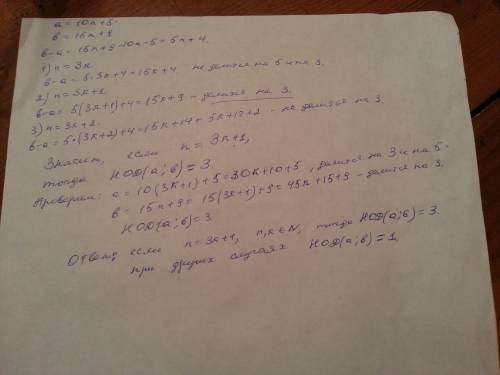 a = 10n+5.
b = 15n+9
b-a = 15n+9-10n-5 = 5n+4.
1) n=3k
b-a = 5·3k+4=15k+4 не делится на 5 и на 3.
2) n=3k+1.
b-a= 5(3k+1)+4=15k+9 - делится на 3.
3) n=3k+2.
b-a = 5·(3k+2)+4=15k+14 = 15k+12+2 - не делится на 3.
Значит, если n = 3k+1,
тогда НОД(a;b)=3.
Проверим: a = 10(3k+1)+5=30k+10+5, делится на 3 и на 5.
b = 15n+9= 15(3k+1)+9=45k+15+9 - делится на 3.
НОД(a;b)=3
Ответ: если n=3k+1, n,k∈N, тогда НОД(a;b)=3.
при других случаях НОД(a;b)=1.